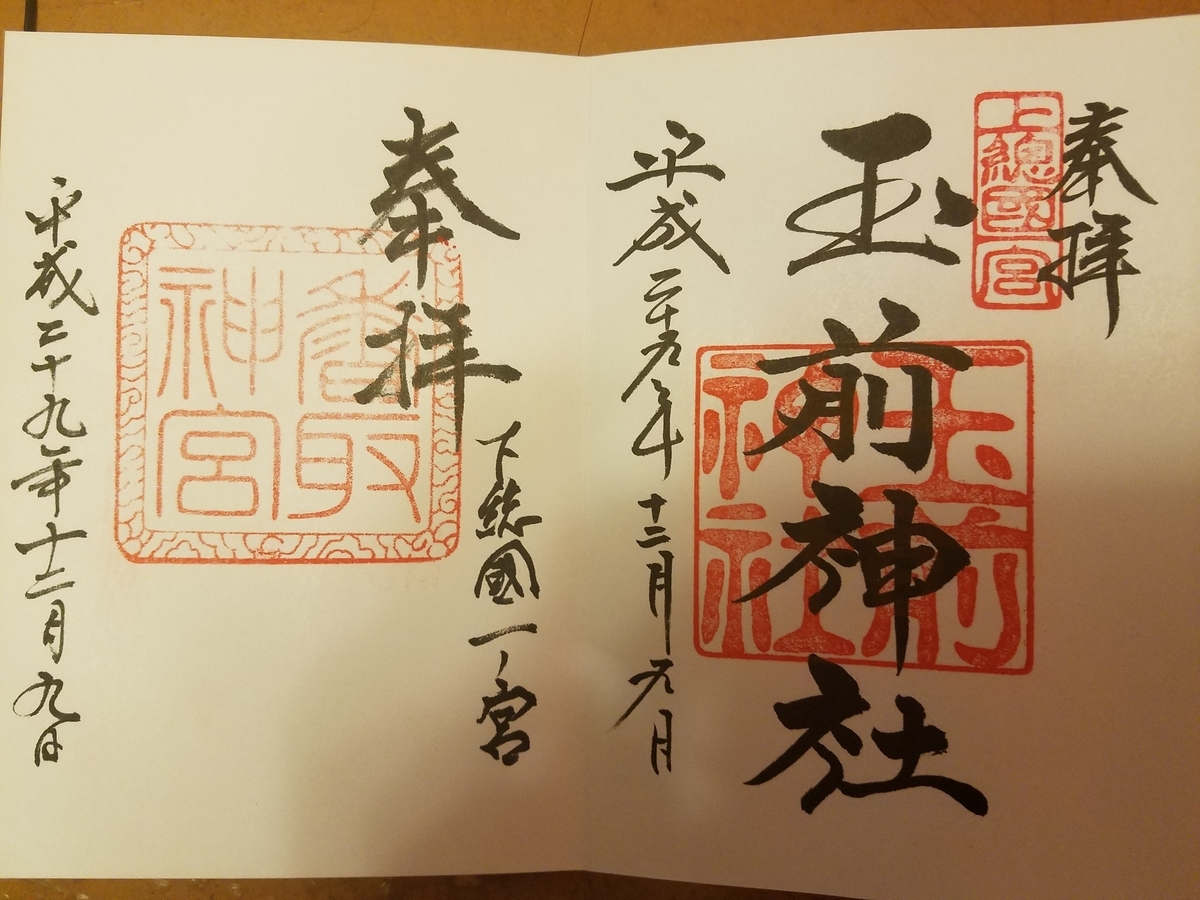 奉拝
上總國一宮
玉前神社
玉前
神社
平成二十九年十二月九日
下総國一ノ宮
奉拝
香取
神宮
平成二十九年十二月九日